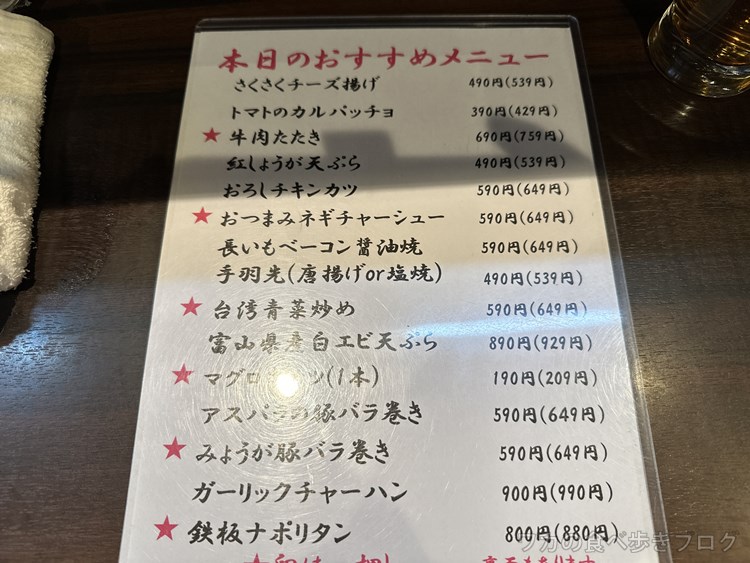 本日のおすすめメニュー
さくさくチーズ揚げ 490円(539円)
トマトのカルパッチョ 390円(429円)
★ 牛肉たたき 690円(759円)
紅しょうが天ぷら 490円(539円)
おろしチキンカツ 590円(649円)
★ おつまみネギチャーシュー 590円(649円)
長いもベーコン醤油焼 590円(649円)
手羽先(唐揚げor塩焼) 490円(539円)
★ 台湾青菜炒め 590円(649円)
富山県産白エビ天ぷら 890円(929円)
★ マグロ ツ(1本) 190円(209円)
アスパラの豚バラ巻き 590円(649円)
★ みょうが豚バラ巻き 590円(649円)
ガーリックチャーハン 900円(990円)
★ 鉄板ナポリタン 800円(880円)
の食べ歩きブログ